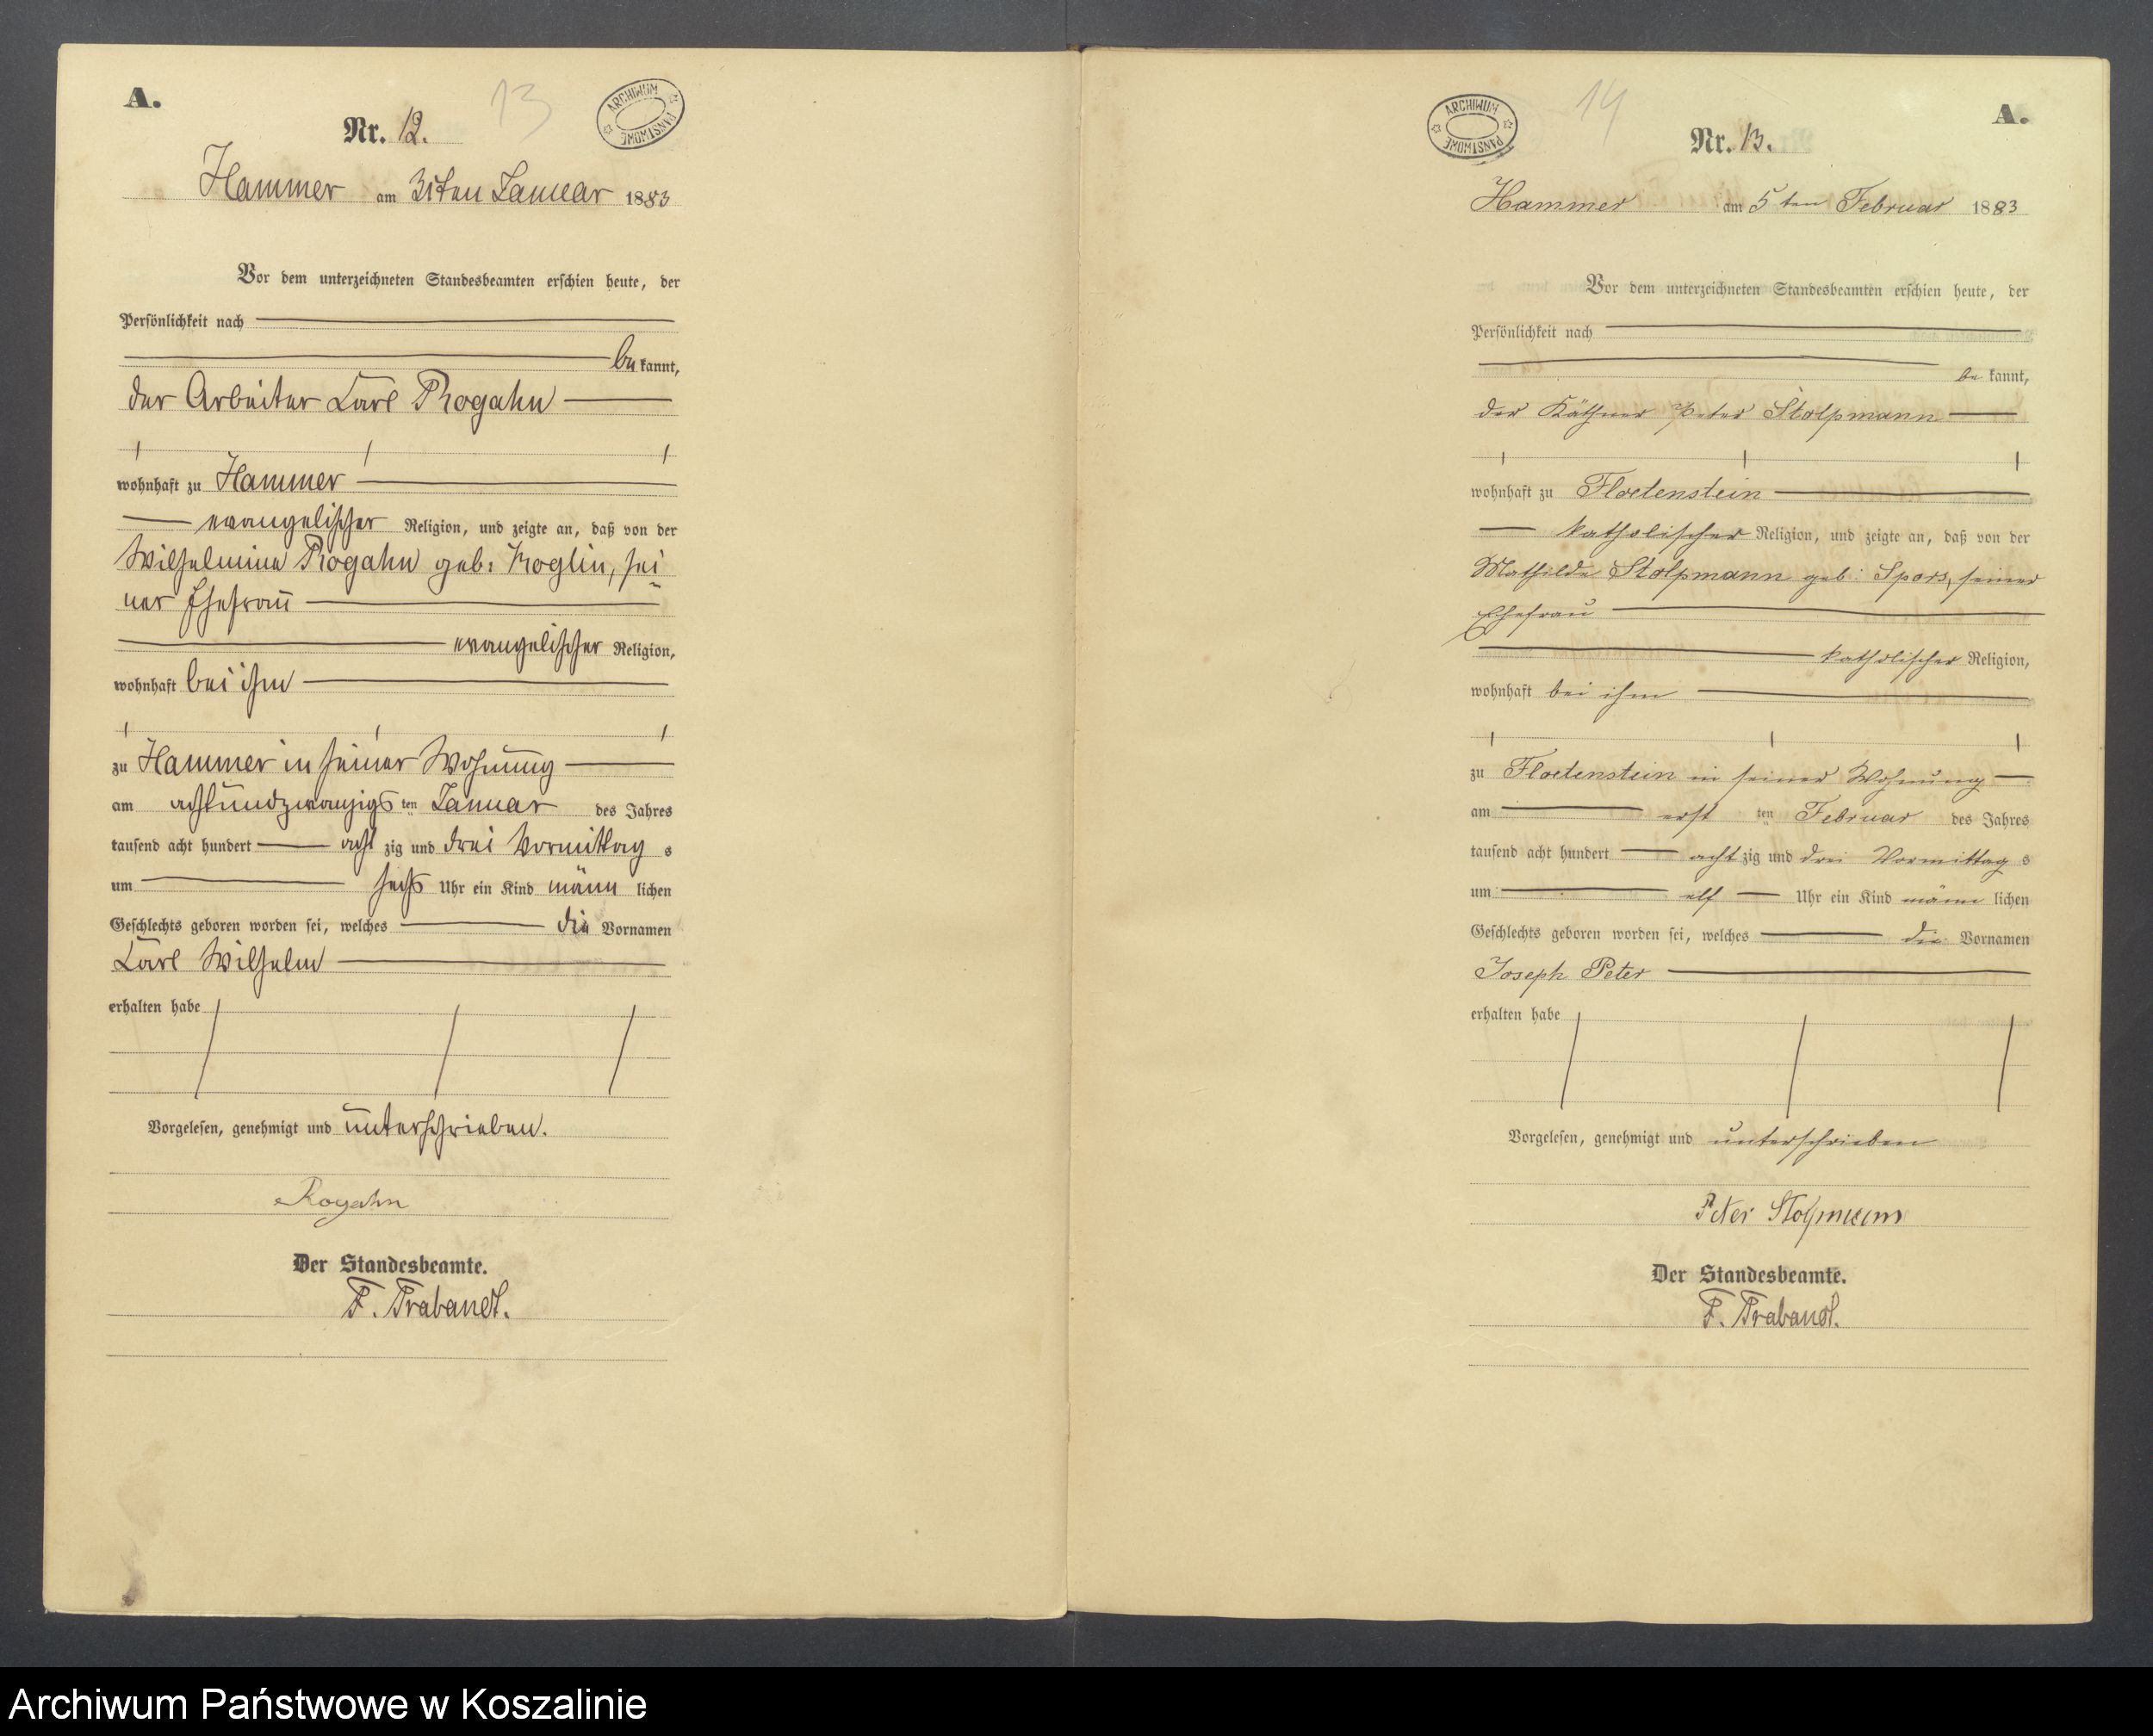 A.
13
ARCHIWUM PAŃSTWOWE
Nr. 12.
Hammer am 31ten Januar 1883
Vor dem unterzeichneten Standesbeamten erschien heute, der
Persönlichkeit nach
be kannt,
der Arbeiter Carl Rogahn
wohnhaft zu Hammer
evangelischer Religion, und zeigte an, daß von der
Wilhelmine Rogahn geb: Koglin, sei
ner Ehefrau
evangelischer Religion,
wohnhaft bei ihm
zu Hammer in seiner Wohnung
am achtundzwanzigs ten Januar des Jahres
tausend acht hundert acht zig und drei Vormittag s
um sechs Uhr ein Kind männ lichen
Geschlechts geboren worden sei, welches die Vornamen
Carl Wilhelm
erhalten habe
Vorgelesen, genehmigt und unterschrieben.
Rogahn
Der Standesbeamte.
F. Trabandt.
14
ARCHIWUM PAŃSTWOWE
A.
Nr. 13.
Hammer am 5ten Februar 1883
Vor dem unterzeichneten Standesbeamten erschien heute, der
Persönlichkeit nach
be kannt,
der Käthner Peter Stolpmann
wohnhaft zu Floetenstein
katholischer Religion, und zeigte an, daß von der
Mathilde Stolpmann geb: Spors, seiner
Ehefrau
katholischer Religion,
wohnhaft bei ihm
zu Floetenstein in seiner Wohnung
am erst ten Februar des Jahres
tausend acht hundert acht zig und drei Vormittag s
um elf Uhr ein Kind männ lichen
Geschlechts geboren worden sei, welches die Vornamen
Joseph Peter
erhalten habe
Vorgelesen, genehmigt und unterschrieben
Peter Stolpmann
Der Standesbeamte.
F. Trabandt.
Archiwum Państwowe w Koszalinie